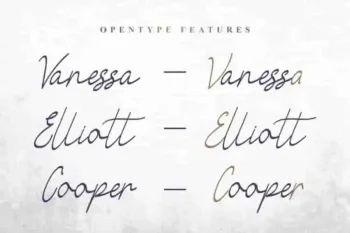 OPENTYPE FEATURES
Vanessa — Vanessa
Elliott — Elliott
Cooper — Cooper